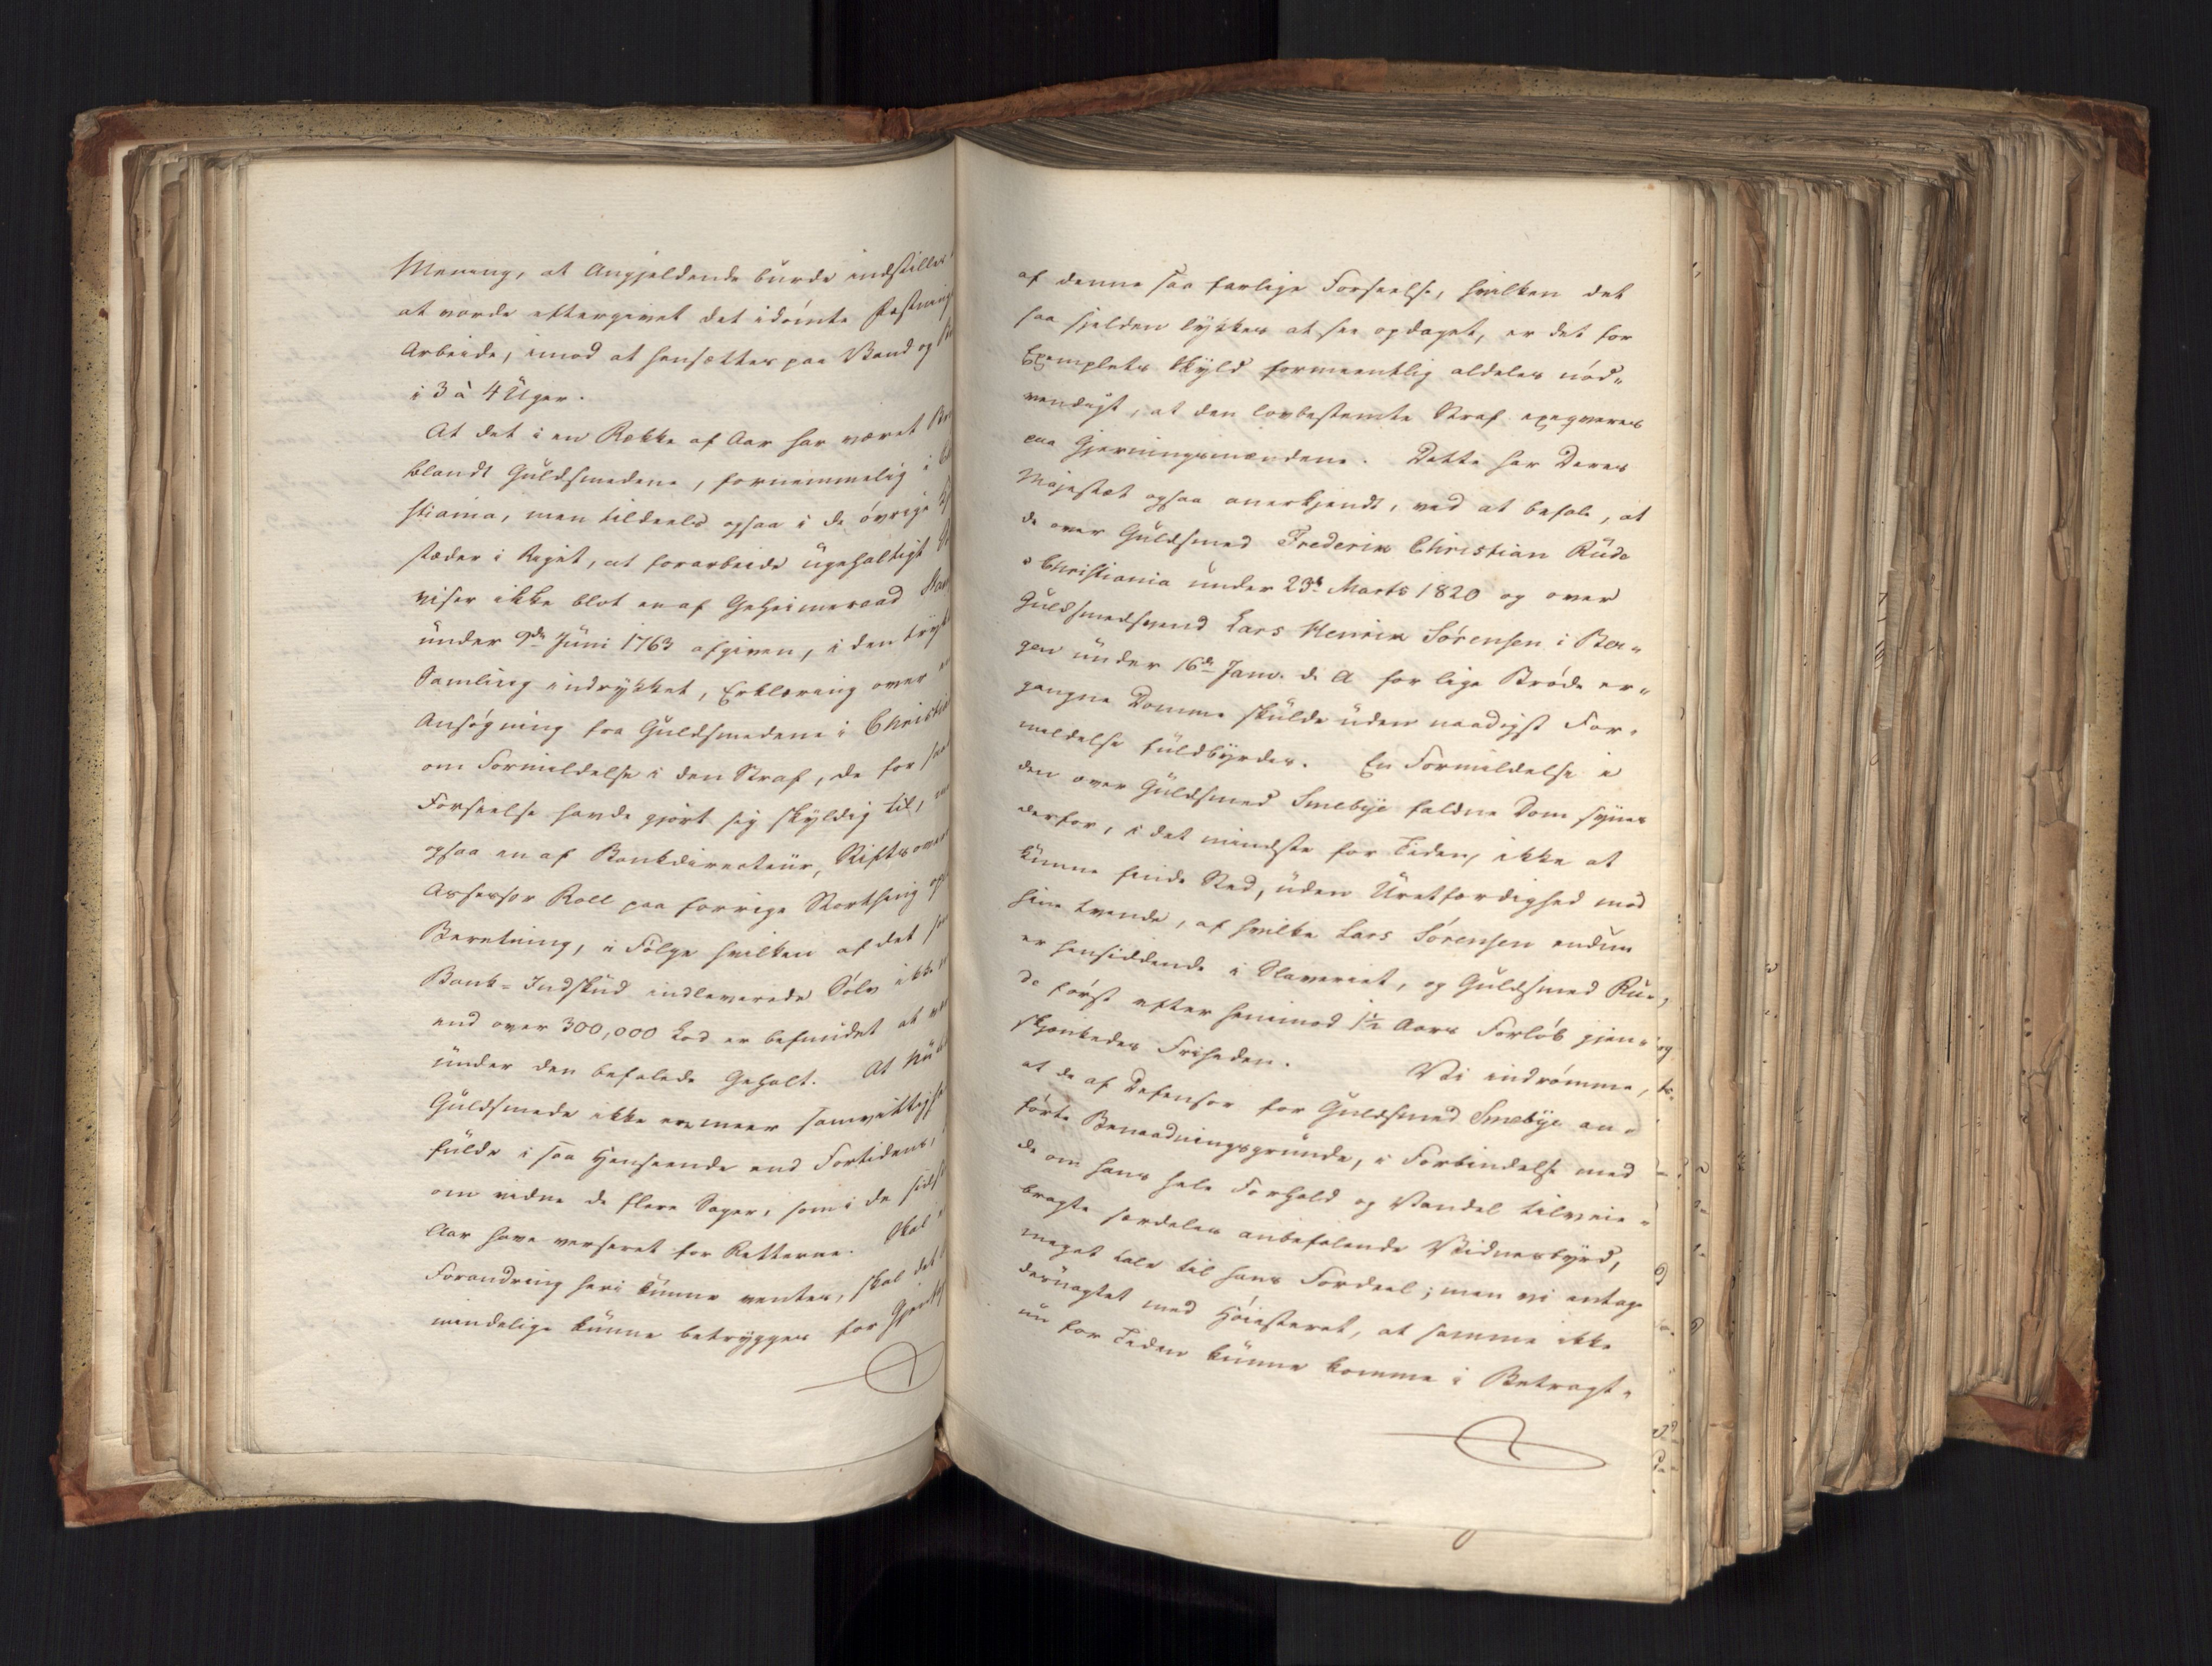 Mening, at Angjeldende burde indstilles
at vorde eftergivet det idømte Fæstnings
Arbeide, imod at hensættes paa Vand og
i 3 à 4 Uger.
At det i en Række af Aar har været
blandt Guldsmedene, fornemmelig i
stiania, men tildeels ogsaa i de øvrige
stæder i Riget, at forarbeide ugehaltigt
viser ikke blot en af Geheimeraad
under 9de Juni 1763 afgiven, i den
Samling indrykket, Erklæring over
Ansøgning fra Guldsmedene i Christia
om Formildelse i den Straf, de for
Forseelse havde gjort sig skyldig til,
ogsaa en af Bankdirecteur, Stiftsover
Assessor Roll paa forrige Storthing
Beretning, i Følge hvilken af det
Bank-Indskud indleverede Sølv ikke
end over 300,000 Lod er befundet at
under den befalede Gehalt. At
Guldsmede ikke ere meer samvittigheds
fulde i saa Henseende end Fortidens,
om vidne de flere Sager, som i de sidste
Aar have verseret for Retterne. Skal
Forandring heri kunne ventes, skal det
mindelige kunne betrygges for
af denne saa farlige Forseelse, hvilken det
saa sjelden lykkes at see opdaget, er det for
Exemplets Skyld formeentlig aldeles nød-
vendigt, at den lovbestemte Straf exeqveres
paa Gjerningsmændene. Dette har Deres
Majestæt ogsaa anerkjendt, ved at befale, at
de over Guldsmed Frederik Christian Rüde
i Christiania under 23de Marts 1820 og over
Guldsmedsvend Lars Henrik Sørensen i Ber-
gen under 16de Janv. d. A. for lige Brøde er-
gangne Domme skulde uden naadigst For-
mildelse fuldbyrdes. En Formildelse i
den over Guldsmed Smebye faldne Dom synes
derfor, i det mindste for Tiden, ikke at
kunne finde Sted, uden Uretfærdighed mod
hine tvende, af hvilke Lars Sørensen endnu
er hensiddende i Slaveriet, og Guldsmed Rü-
de først efter henimod 1½ Aars Forløb gjen-
skjænkedes Friheden. Vi indrømme,
at de af Defensor for Guldsmed Smebye an-
førte Benaadningsgrunde, i Forbindelse med
de om hans hele Forhold og Vandel tilveie-
bragte særdeles anbefalende Vidnesbyrd,
meget tale til hans Fordeel; men vi antage
desuagtet med Høiesteret, at samme ikke
nu for Tiden kunne komme i Betragt-